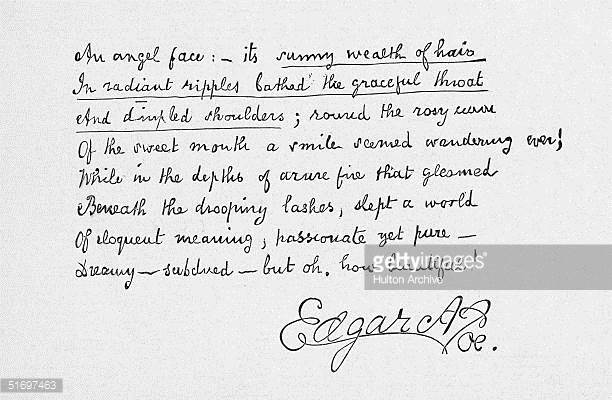 An angel face: – its sunny wealth of hair
In radiant ripples bathed the graceful throat
And dimpled shoulders; round the rosy curve
Of the sweet mouth a smile seemed wandering ever;
While in the depths of azure fire that gleamed
Beneath the drooping lashes, slept a world
Of eloquent meaning, passionate yet pure –
Dreamy – subdued – but oh, how beautiful!
Edgar A Poe.
gettyimages
Hulton Archive
51697463